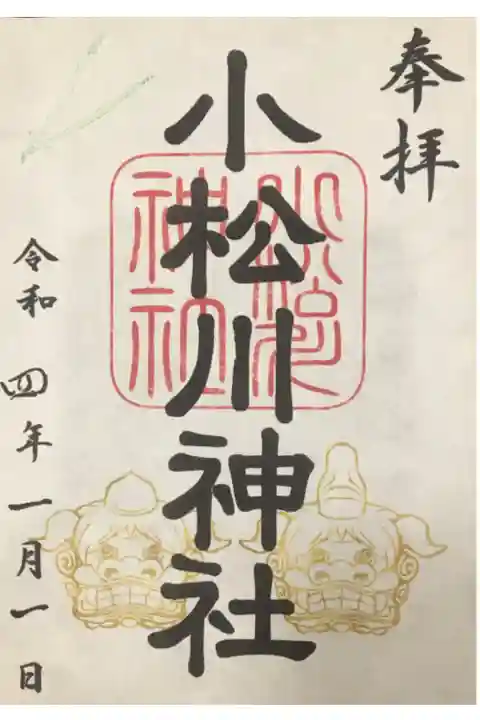 奉拝
小松川神社
小松川
神社
令和四年一月一日